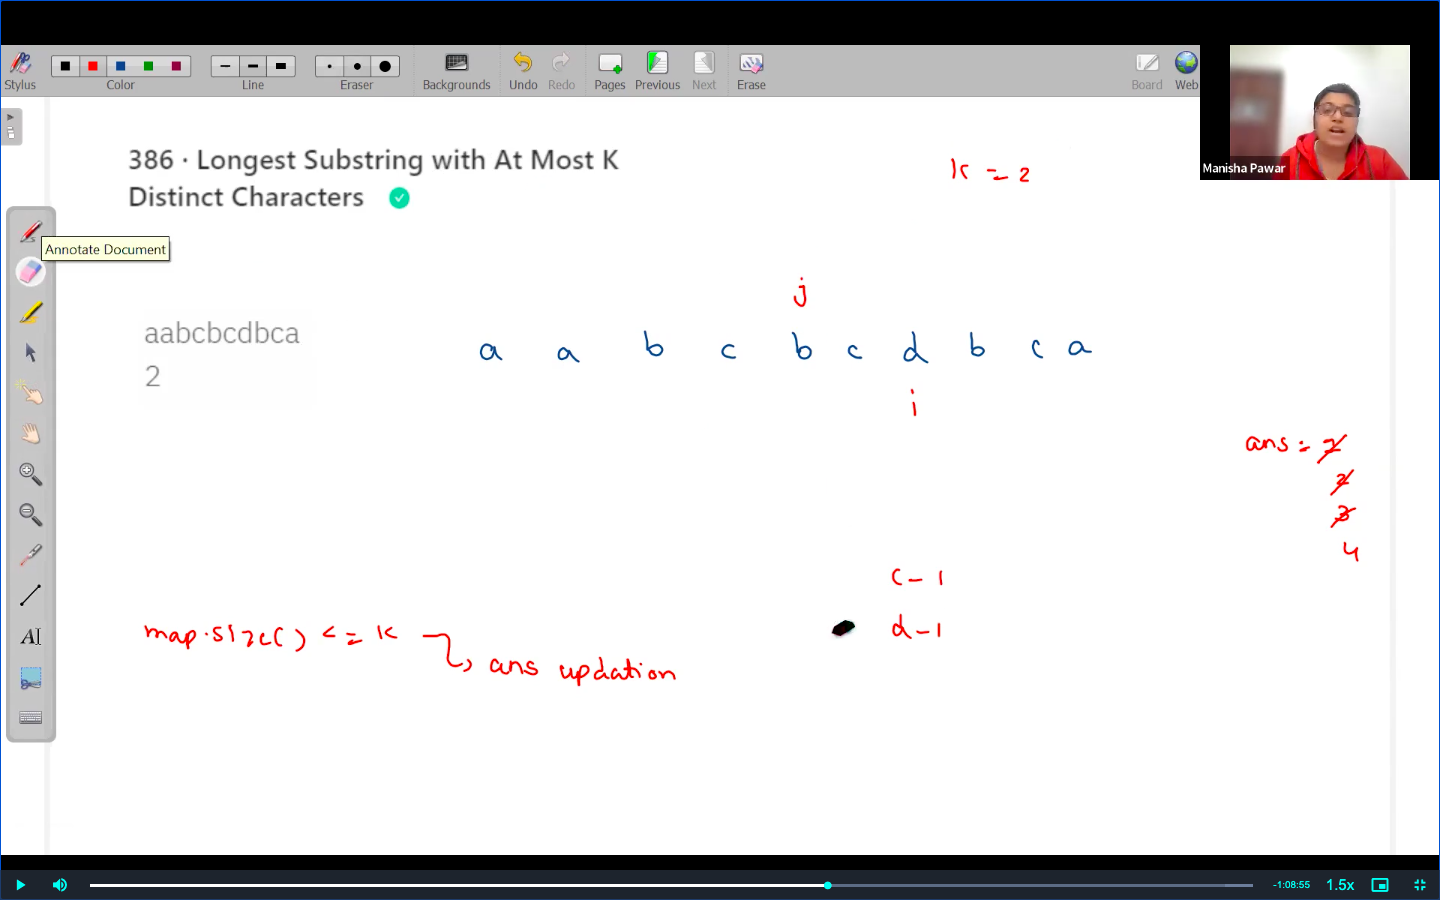 Stylus Color Line Eraser Backgrounds Undo Redo Pages Previous Next Erase Board Web
Manisha Pawar
386 · Longest Substring with At Most K
Distinct Characters
K = 2
Annotate Document
j
aabcbcdbca
2
a a b c b c d b c a
i
ans = 2
2
3
4
c - 1
d - 1
map.size() <= K
ans updation
AI
-1:08:55 1.5x